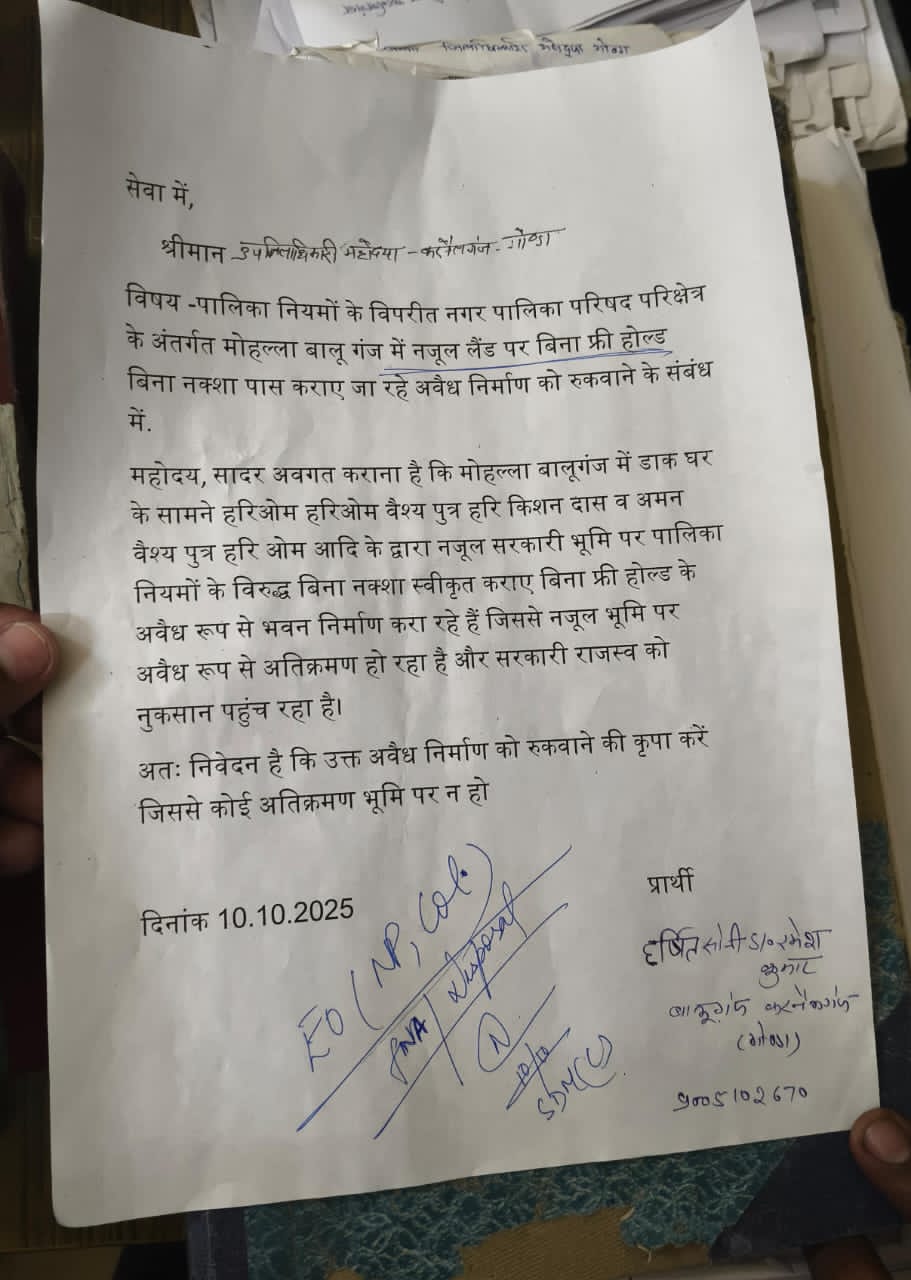 सेवा में,
श्रीमान उपजिलाधिकारी महोदया - करनैलगंज - गोण्डा
विषय -पालिका नियमों के विपरीत नगर पालिका परिषद परिक्षेत्र
के अंतर्गत मोहल्ला बालू गंज में नजूल लैंड पर बिना फ्री होल्ड
बिना नक्शा पास कराए जा रहे अवैध निर्माण को रुकवाने के संबंध
में.
महोदय, सादर अवगत कराना है कि मोहल्ला बालूगंज में डाक घर
के सामने हरिओम हरिओम वैश्य पुत्र हरि किशन दास व अमन
वैश्य पुत्र हरि ओम आदि के द्वारा नजूल सरकारी भूमि पर पालिका
नियमों के विरुद्ध बिना नक्शा स्वीकृत कराए बिना फ्री होल्ड के
अवैध रूप से भवन निर्माण करा रहे हैं जिससे नजूल भूमि पर
अवैध रूप से अतिक्रमण हो रहा है और सरकारी राजस्व को
नुकसान पहुंच रहा है।
अतः निवेदन है कि उक्त अवैध निर्माण को रुकवाने की कृपा करें
जिससे कोई अतिक्रमण भूमि पर न हो
दिनांक 10.10.2025
EO (NP, Col.)
FNA / Disposal
10/10
SDM (C)
प्रार्थी
हर्षित सोनी S/o रमेश
कुमार
बालूगंज करनैलगंज
(गोण्डा)
9005102670